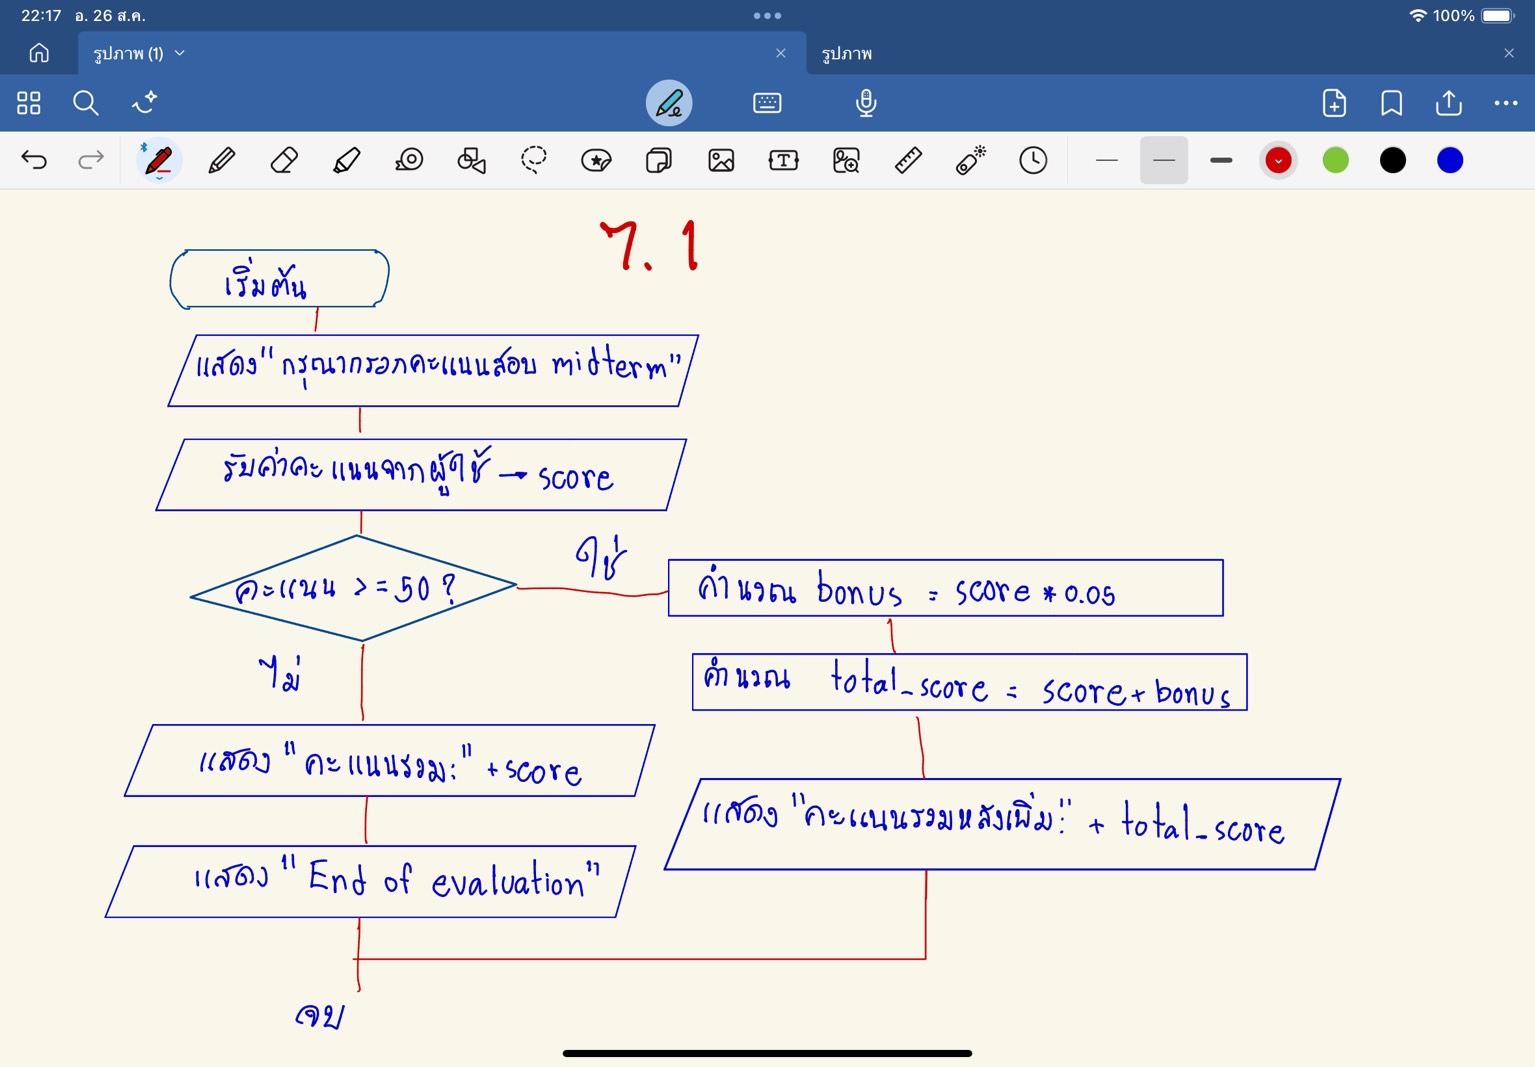 22:17 อ. 26 ส.ค.
100%
รูปภาพ (1)
รูปภาพ
7. 1
เริ่มต้น
แสดง "กรุณากรอกคะแนนสอบ midterm"
รับค่าคะแนนจากผู้ใช้ → score
คะแนน >= 50 ?
ใช่
คำนวณ bonus = score * 0.05
ไม่
คำนวณ total_score = score + bonus
แสดง "คะแนนรวม:" + score
แสดง "คะแนนรวมหลังเพิ่ม:" + total_score
แสดง "End of evaluation"
จบ